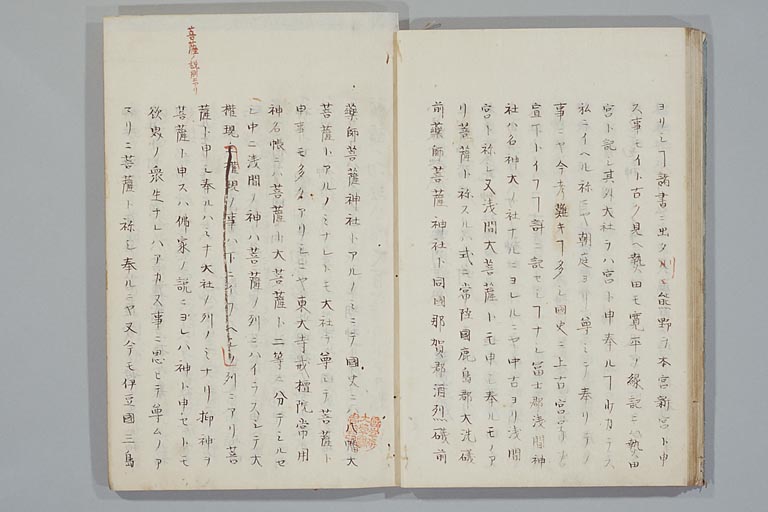 ヨリシテ諸書ニ出タリ熊野ヲ本宮新宮ト申
ス事モイト古ク見ヘ熱田モ寛平ノ縁記ニハ熱田
宮ト記シ其外大社ヲハ宮ト申奉ル
私ニイヘル称ニヤ朝廷ヨリ尊ミテ奉リテノ
事ニヤ今考難キ多シ国史ニ上古宮号
宣下トイフ計ニ記セシナシ冨士郡浅間神
社ハ名神大ノ社ナルニヨレルニヤ中古ヨリ浅間
宮ト称シ又浅間大菩薩トモ申モ奉ルモノア
リ菩薩ト称スルハ式ニ常陸国鹿島郡大洗磯
前薬師菩薩神社ト同国那賀郡酒烈磯前
薬師菩薩神社トアルノミニテ国史ニハ八幡大
菩薩トアルノミナレトモ大社ヲ尊ミテ菩薩ト
申事モ多クアリシニヤ東大寺戒壇院常用
神名帳ニハ菩薩大菩薩ト二等ニ分テシルセ
シ中ニ浅間ノ神ハ菩薩ノ列ニハイラスシテ大
権現ノ列ニアリ菩
薩ト申シ奉ルハミナ大社ノ列ノミナリ抑神ヲ
菩薩ト申スハ佛家ノ説ニヨレハ神ト申セトモ
欲界ノ衆生ナレハアカス事ニ思ヒテ尊ムノア
マリニ菩薩ト称シ奉ルニヤ又今モ伊豆国三島
菩薩ノ説